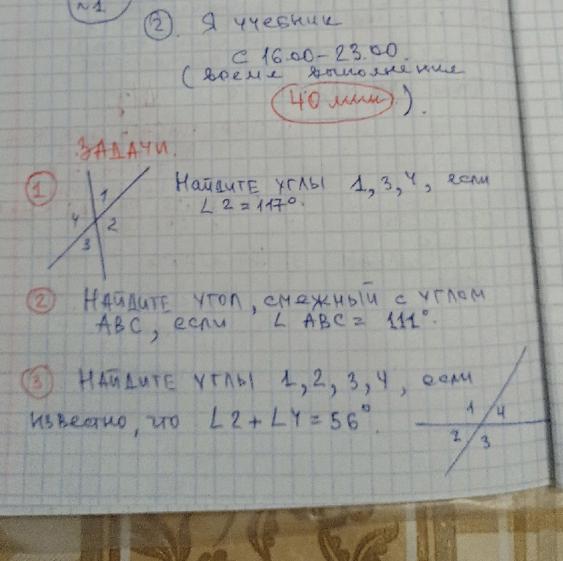 N1
2. Я учебник
с 16.00-23.00.
(время выполнения
40 мин).
ЗАДАЧИ.
1 Найдите углы 1, 3, 4, если
∠2=117°.
1
4 2
3
2 Найдите угол, смежный с углом
АВС, если ∠ АВС = 111°.
3 Найдите углы 1, 2, 3, 4, если
известно, что ∠2+∠4=56°.
1 4
2 3